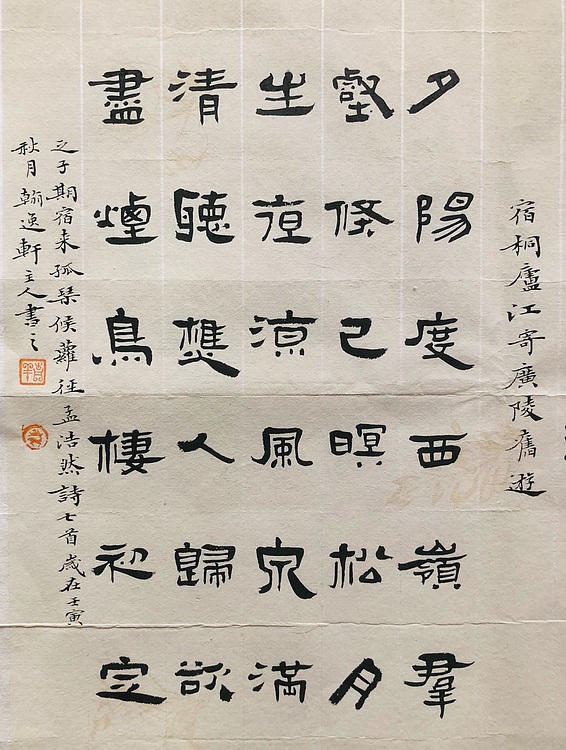 宿桐廬江寄廣陵舊遊
夕陽度西嶺羣
壑倏已暝松月
生夜涼風泉滿
清聽樵人歸欲
盡煙鳥棲初定
之子期宿来孤琴候蘿徑孟浩然詩七首歲在壬寅
秋月翰逸軒主人書之